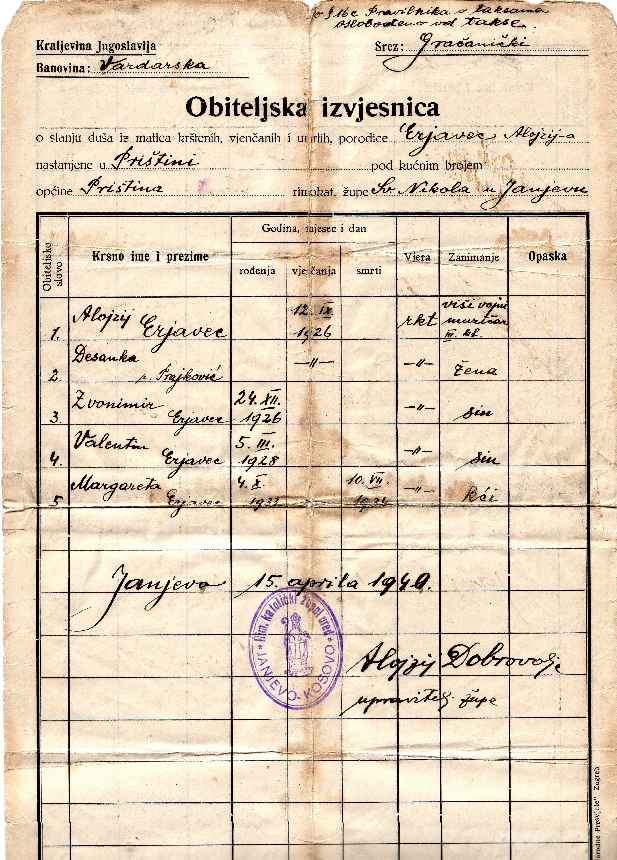 po § 16c Pravilnika o taksama
oslobođeno od takse.
Kraljevina Jugoslavija
Srez: Gračanički
Banovina: Vardarska
Obiteljska izvjesnica
o stanju duša iz matica krštenih, vjenčanih i umrlih, porodice Erjavec Alojzij-a
nastanjene u Prištini pod kućnim brojem
općine Priština rimokat. župe Sv. Nikola u Janjevu
Obiteljsko slovo
Krsno ime i prezime
Godina, mjesec i dan
rođenja vjenčanja smrti
Vjera Zanimanje Opaska
1. Alojzij Erjavec 12. IX. 1926 rkt viši vojni muzičar III. kl.
2. Desanka r. Prajković —〃— —〃— žena
3. Zvonimir Erjavec 24. XII. 1926 —〃— sin
4. Valentin Erjavec 5. III. 1928 —〃— sin
5. Margareta Erjavec 4. X. 10. VII. —〃— kći
Janjevo 15. aprila 1940.
Rim. katolički župni ured
JANJEVO-KOSOVO
Alojzij Dobrovolje
upravitelj župe